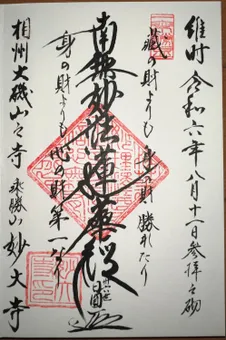 維時 令和六年八月十一日参拝之砌
蔵の財よりも 身の財勝れたり
南無妙法蓮華経
身の財よりも心の財第一なり
相州大磯山之寺 妙大寺